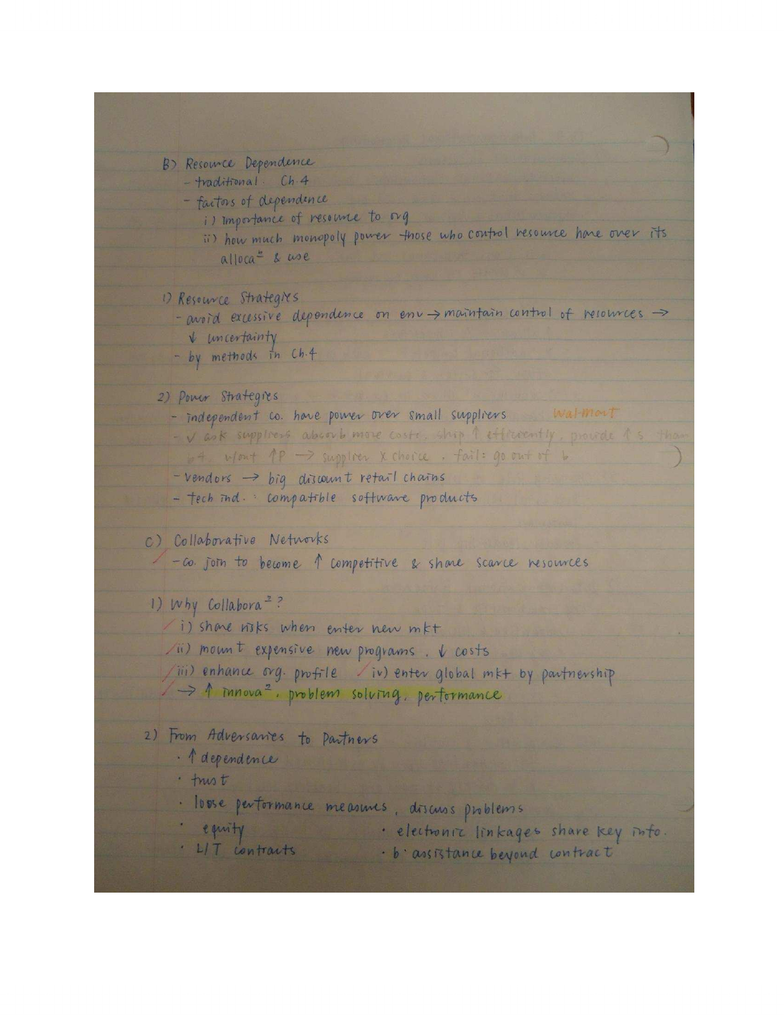 B) Resource Dependence
- traditional Ch.4
- factors of dependence
i) importance of resource to org
ii) how much monopoly power those who control resource have over its
allocaⁿ & use
1) Resource Strategies
- avoid excessive dependence on env → maintain control of resources →
↓ uncertainty
- by methods in Ch.4
2) Power Strategies
- independent co. have power over small suppliers Wal-Mart
- ask suppliers absorb more costs, ship ↑ efficiently, provide ↑ s than
w/out ↑P → supplier X choice. fail: go out of b
- vendors → big discount retail chains
- tech ind.: compatible software products
C) Collaborative Networks
- co. join to become ↑ competitive & share scarce resources
1) Why Collaboraⁿ?
i) share risks when enter new mkt
ii) mount expensive new programs, ↓ costs
iii) enhance org. profile iv) enter global mkt by partnership
→ ↑ innovaⁿ, problem solving, performance
2) From Adversaries to Partners
· ↑ dependence
· trust
· loose performance measures, discuss problems
· equity · electronic linkages share key info.
· L/T contracts · b. assistance beyond contract